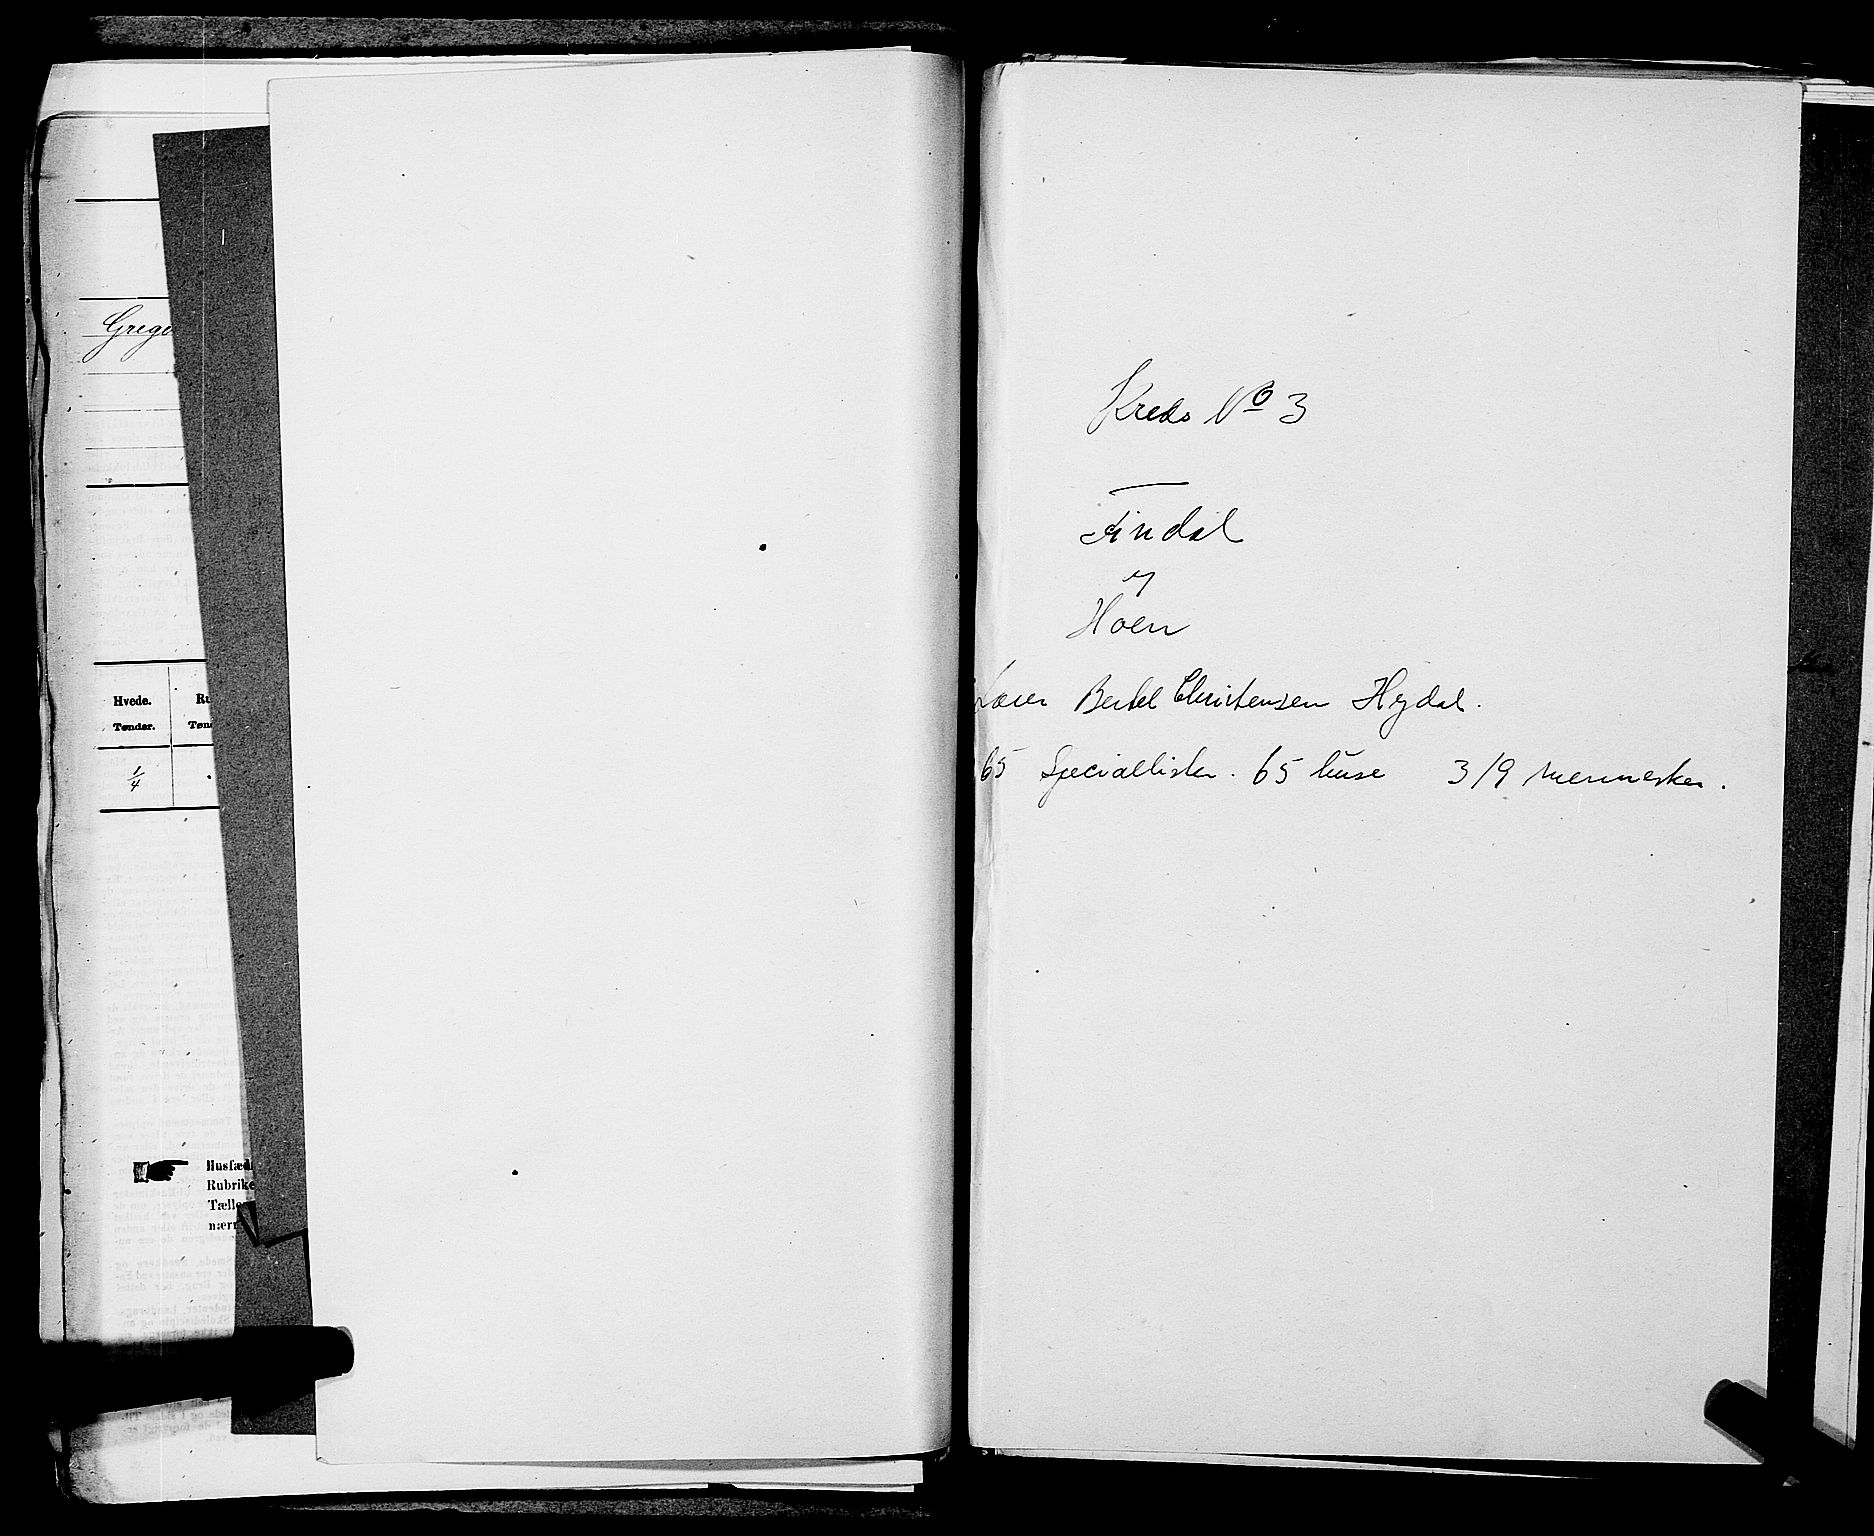 Grego
Hvede.
Tønder.
Ru
Tønd
1/4
Husfæd
Rubrike
Tælle
nærr
Kreds No 3
Findal
og
Hoen
Lærer Bertel Christensen Hydal.
65 Speciallister. 65 huse 319 mennesker.